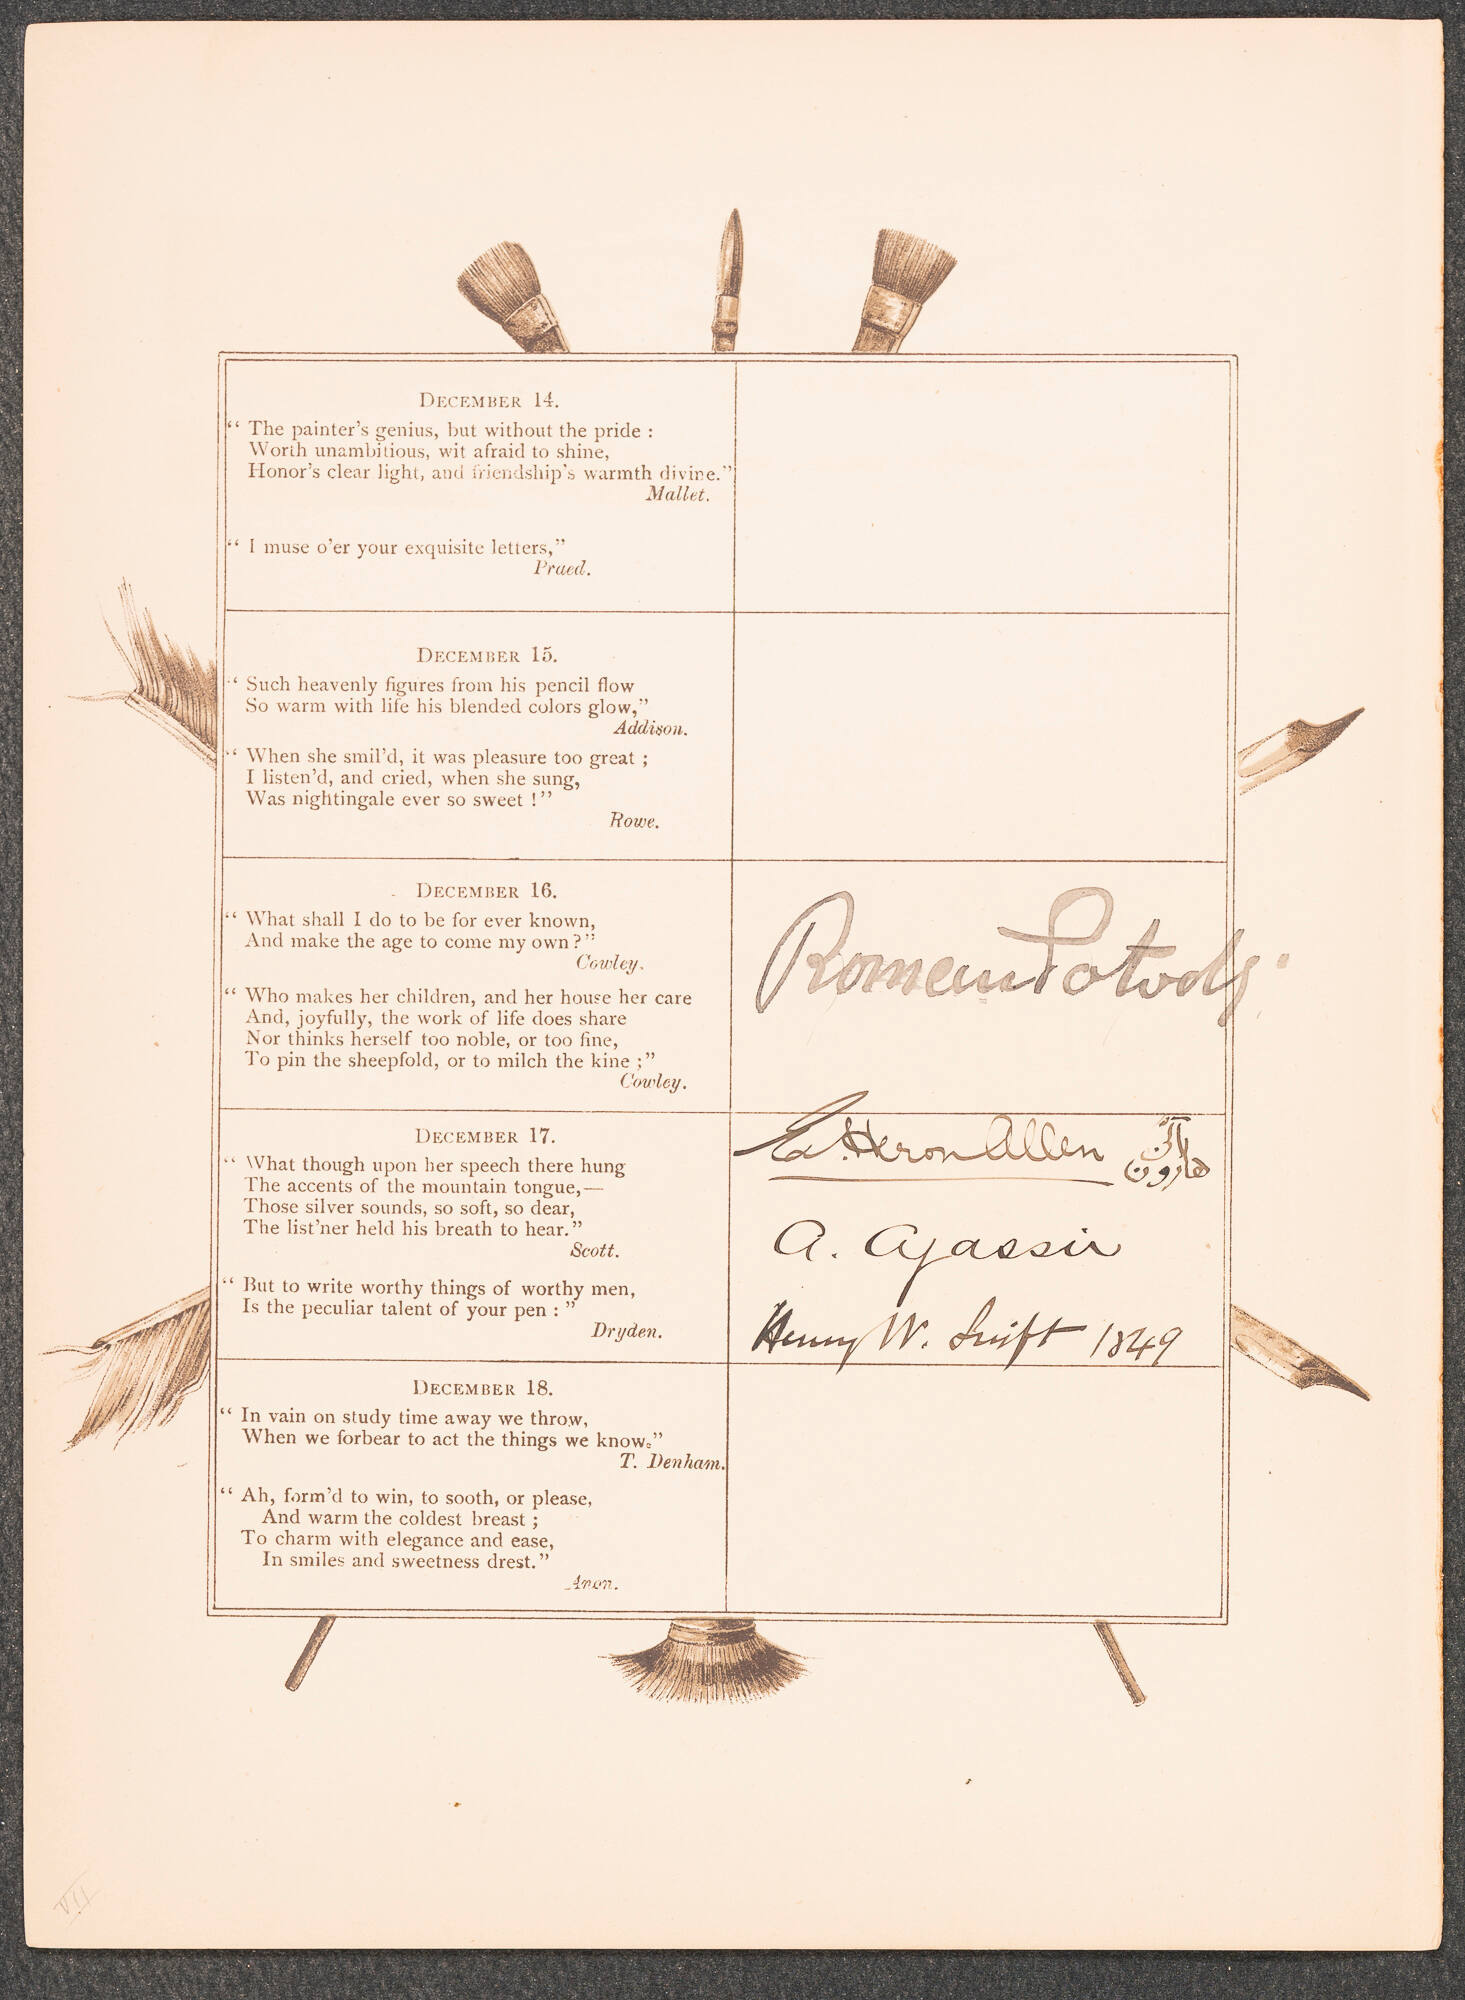 DECEMBER 14.
“ The painter’s genius, but without the pride :
Worth unambitious, wit afraid to shine,
Honor’s clear light, and friendship’s warmth divine.”
Mallet.
“ I muse o’er your exquisite letters,”
Praed.
DECEMBER 15.
“ Such heavenly figures from his pencil flow
So warm with life his blended colors glow,”
Addison.
“ When she smil’d, it was pleasure too great ;
I listen’d, and cried, when she sung,
Was nightingale ever so sweet !”
Rowe.
DECEMBER 16.
“ What shall I do to be for ever known,
And make the age to come my own ?”
Cowley.
“ Who makes her children, and her house her care
And, joyfully, the work of life does share
Nor thinks herself too noble, or too fine,
To pin the sheepfold, or to milch the kine ;”
Cowley.
DECEMBER 17.
“ What though upon her speech there hung
The accents of the mountain tongue,—
Those silver sounds, so soft, so dear,
The list’ner held his breath to hear.”
Scott.
“ But to write worthy things of worthy men,
Is the peculiar talent of your pen : ”
Dryden.
Ed. Heron Allen
هارون
A. Agassiz
Henry W. Swift 1849
DECEMBER 18.
“ In vain on study time away we throw,
When we forbear to act the things we know.”
T. Denham.
“ Ah, form’d to win, to sooth, or please,
And warm the coldest breast ;
To charm with elegance and ease,
In smiles and sweetness drest.”
Anon.
VII